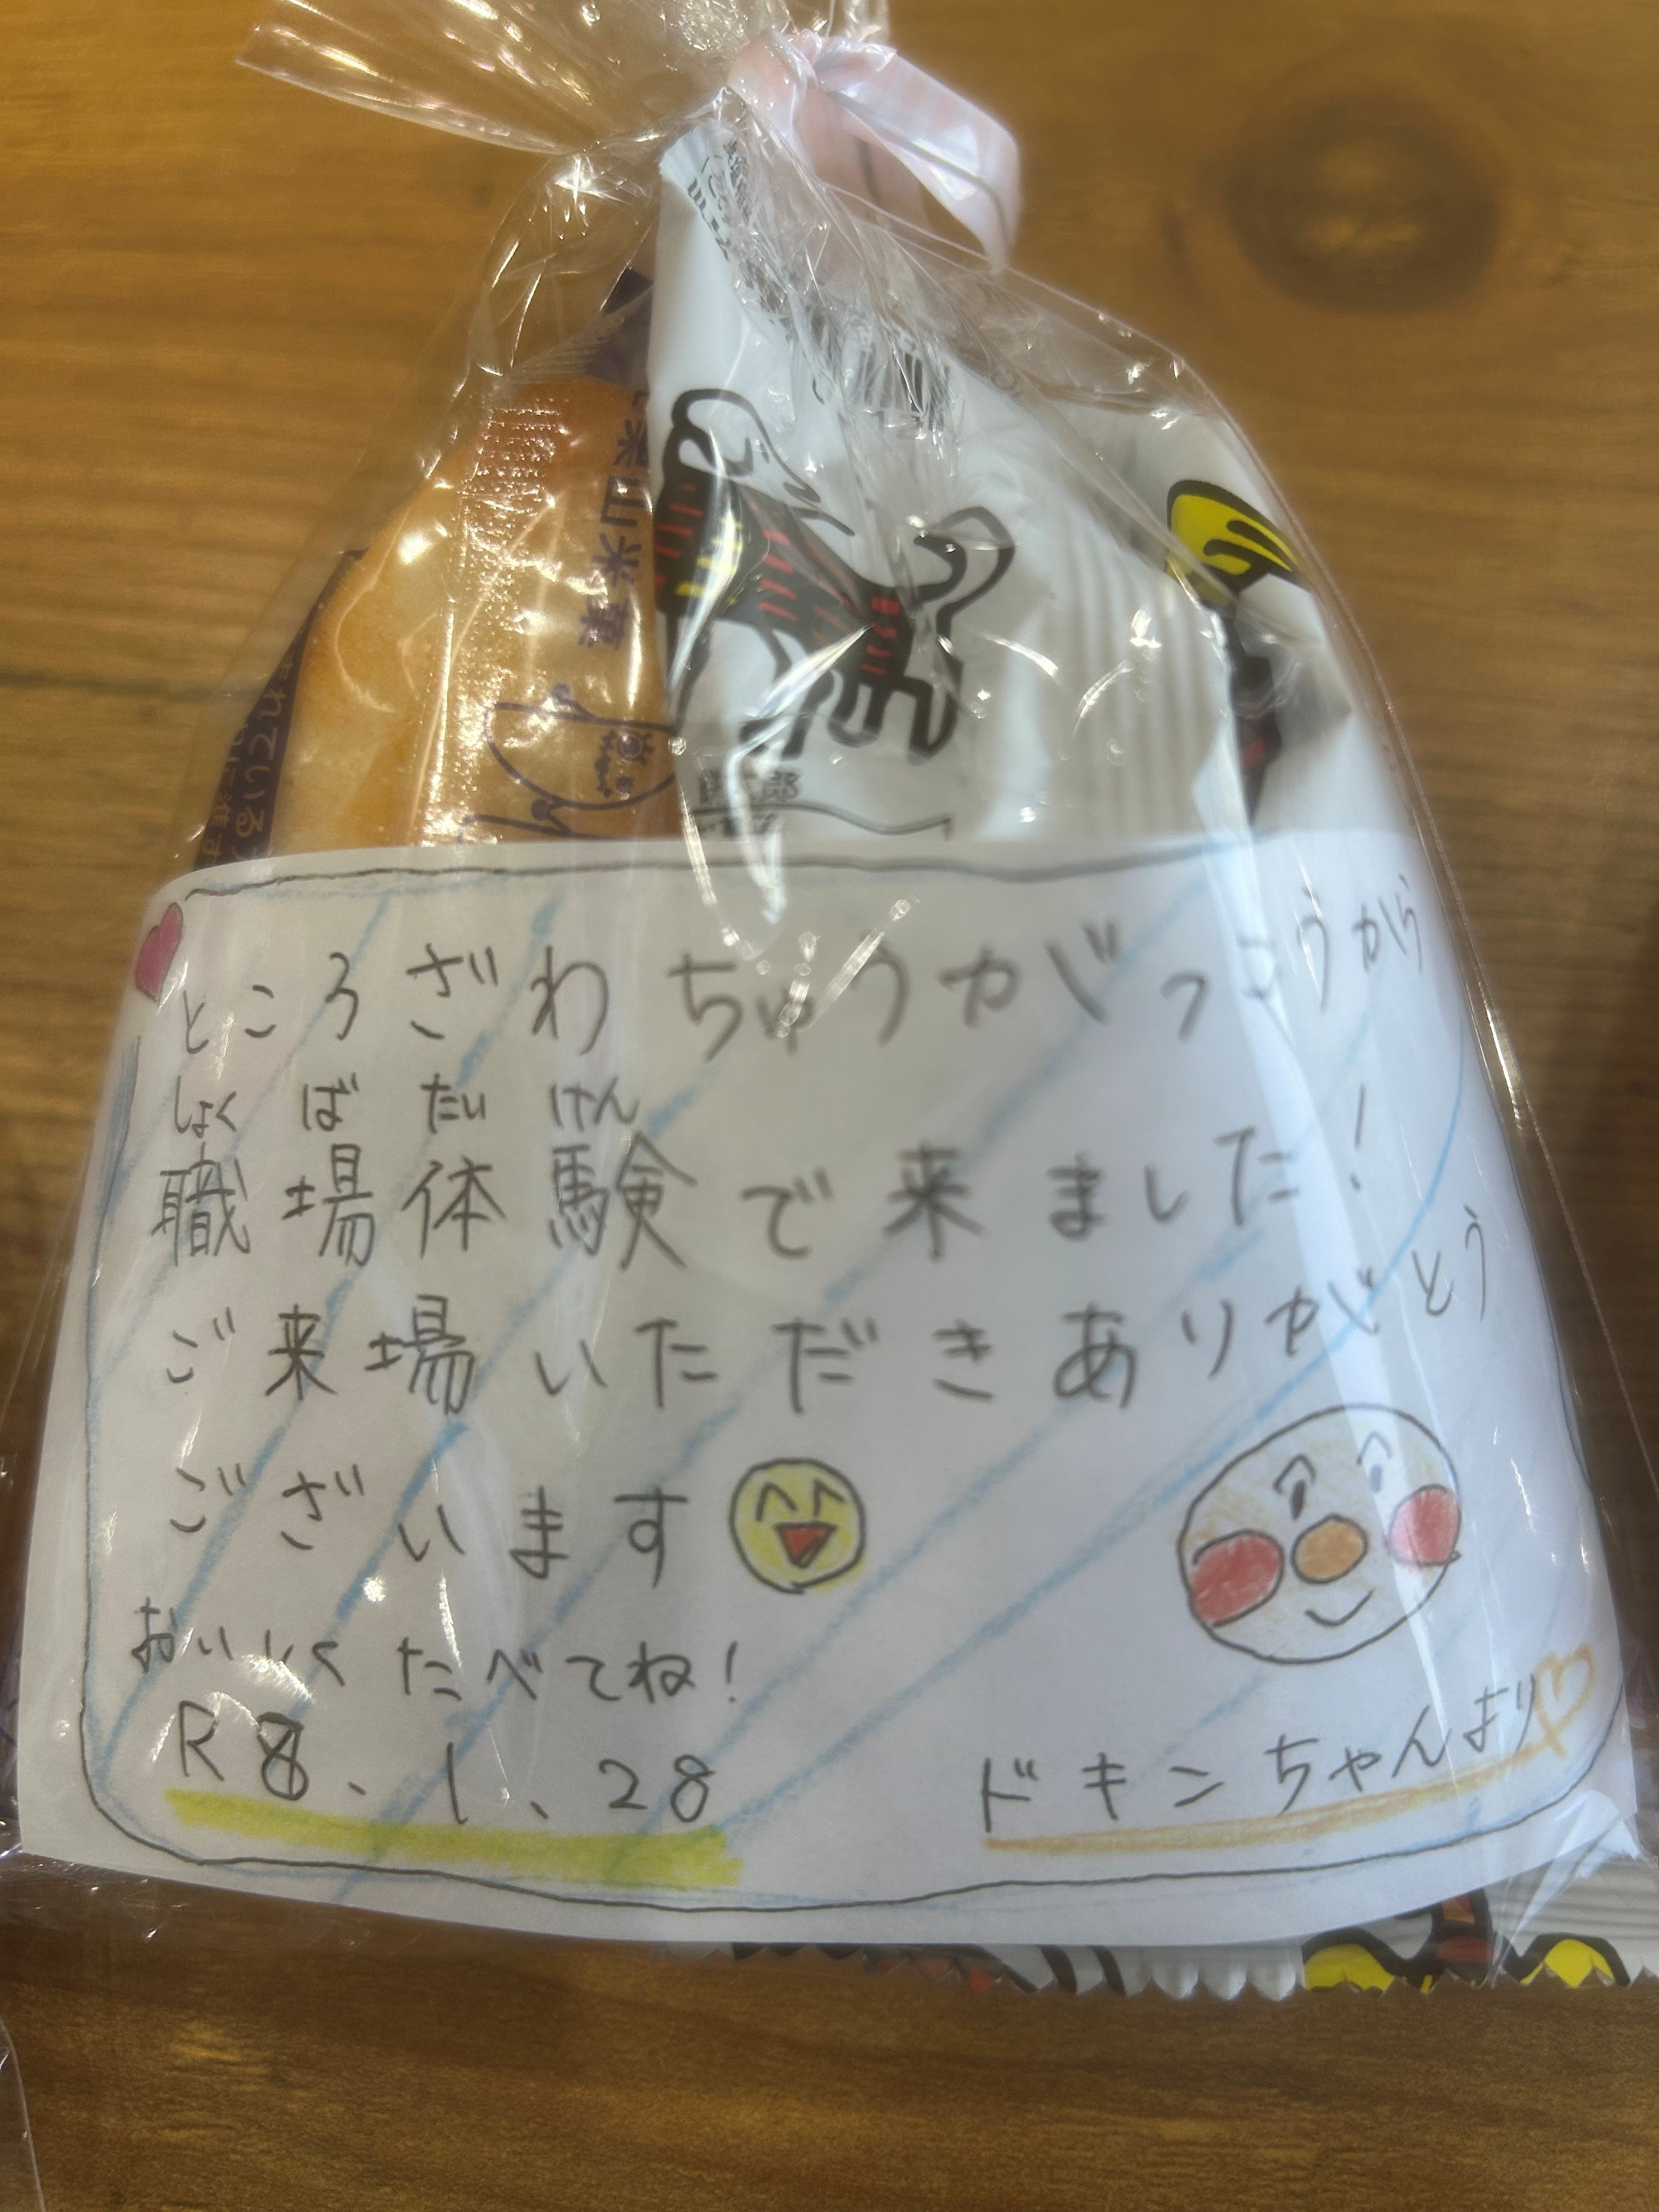 米菓
ところざわちゅうがっこうから
しょく ば たい けん
職場体験で来ました!
ご来場いただきありがとう
ございます
おいしくたべてね!
R8、1、28
ドキンちゃんより